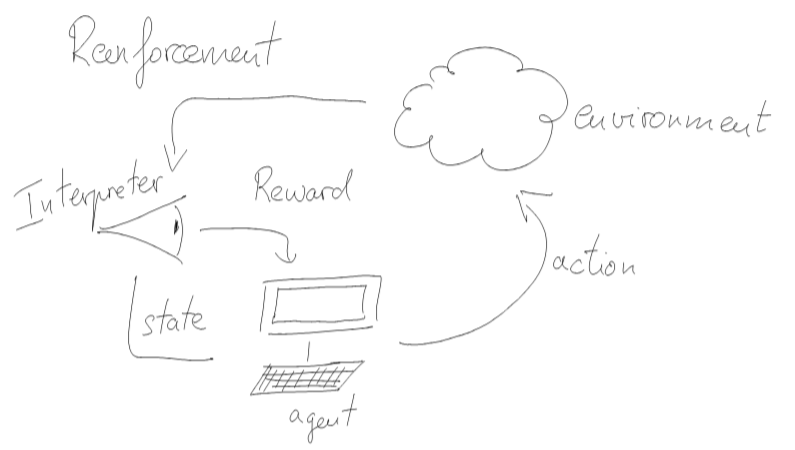 Reenforcement
environment
Interpreter
Reward
action
state
agent